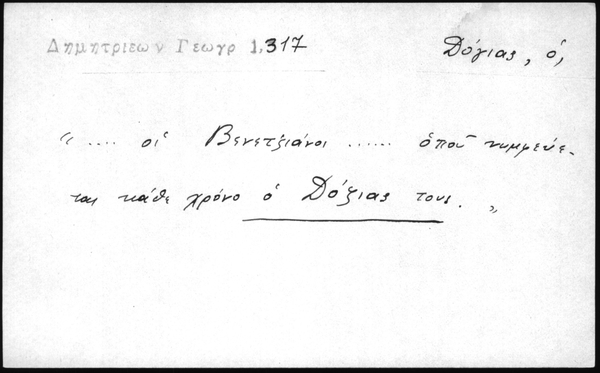 Δημητριεων Γεωγρ 1,317
Δόγιας, ὁ,
".... οἱ Βενετζιάνοι ...... ὁποῦ νυμφεύε-
ται κάθε χρόνο ὁ Δόζιας τους."